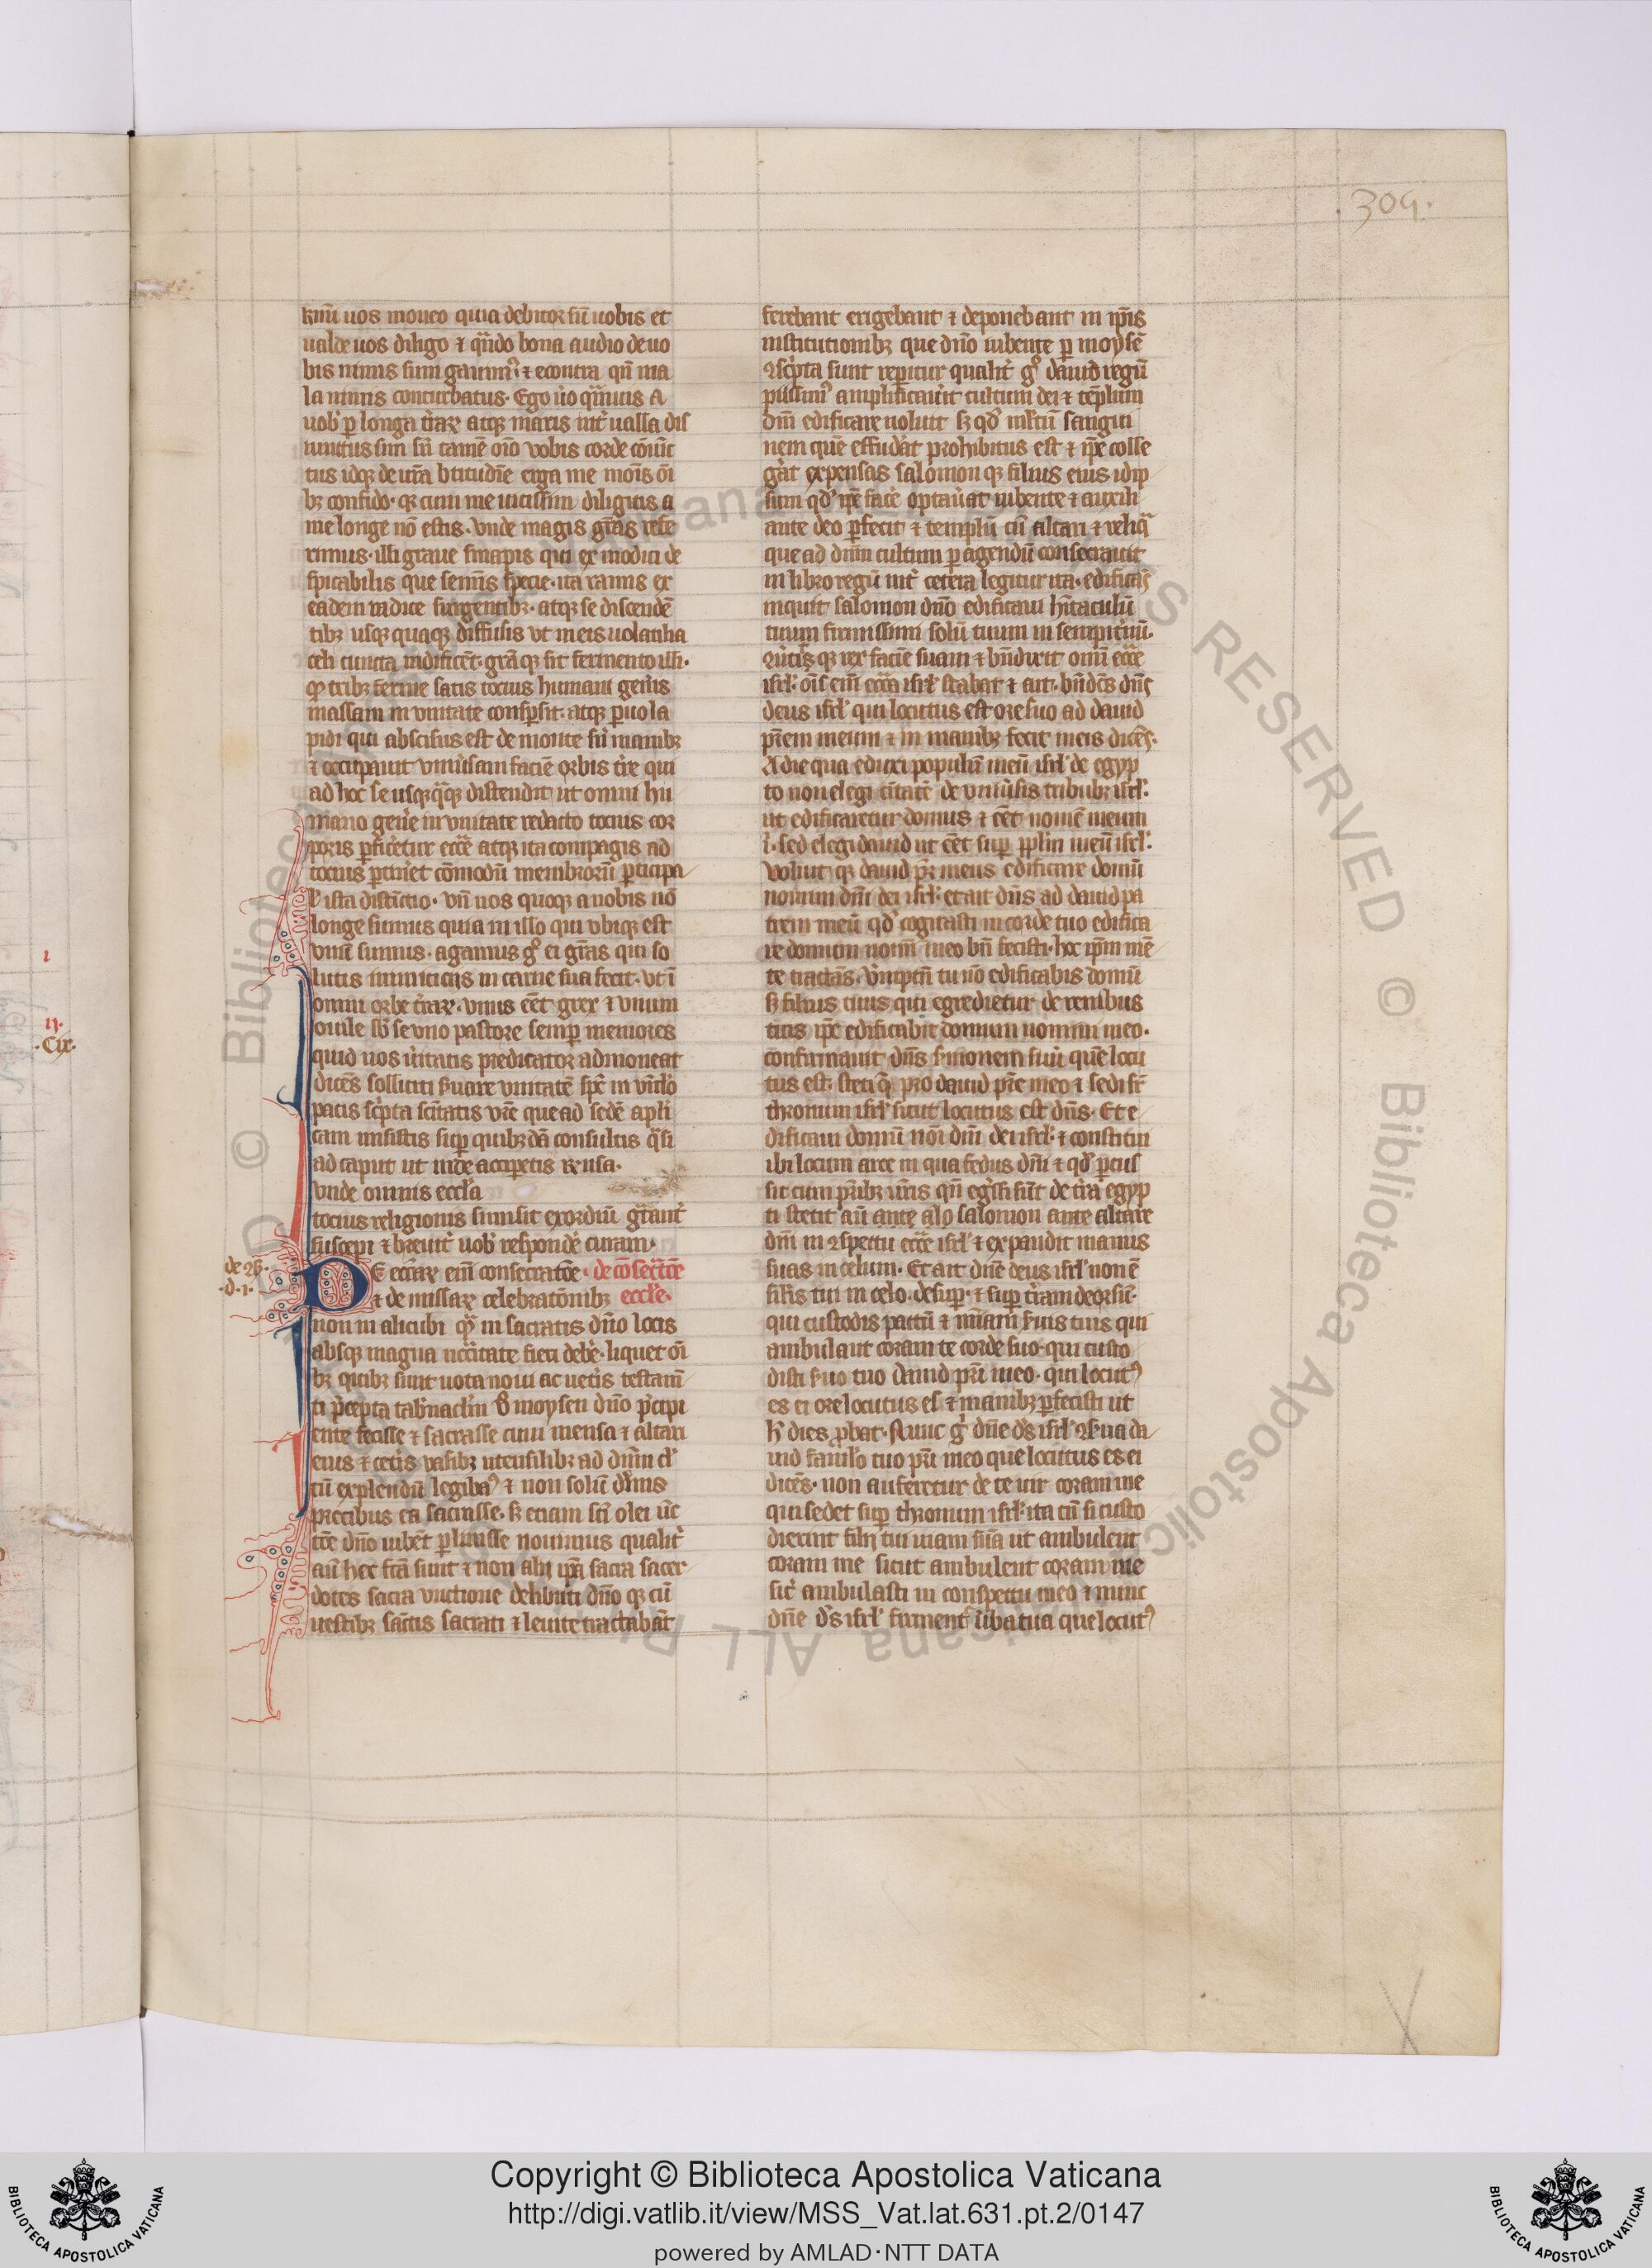 .309.
kmi uos moneo quia debitor sū uobis et
ualde uos diligo ⁊ qn̄do bona audio de uo
bis nimis sum gauim᷒ ⁊ econtra qn̄ ma
la nimis conturbatus. Ego ůo q̄muis a
uob̕ ꝑ longa t̓raꝝ atqꝫ maris int̓ualla dis
iunctus sim sū tamē oīo vobis corde cōiūc
tus idqꝫ de ur̄a btitudīe erga me mōis ōi
bꝫ confido. qꝫ cum me uicissim diligitis a
me longe nō estis. Vnde magis grās refe
rimus. illi graue sinapis qui ex modici de
spicabilis que semīs specie. ita ramis ex
eadem radice surgentibꝫ. atqꝫ se discendē
tibꝫ usqꝫ quaqꝫ diffusis vt meis uolatilia
celi cuncta nidificēt. grā qꝫ sit fermento illi.
qꝫ tribꝫ ferme satis tocius humani gen̓is
massam in vnitate conspsit. atqꝫ puo la
pidi qui abscisus est de monte sn̄ manibꝫ
⁊ occupauit vniu̓sam faciē orbis t̓re qui
ad hoc se usqꝫ q̄qꝫ distendit ut omni hu
mano gen̓e in vnitate redacto tocius cor
poris ꝑficeretur ecc̄e atqꝫ ita compagis ad
tocius ꝑtineret cōmodū membrorū ꝑticipa
l̓ ista distīctio. vn̄ uos quoqꝫ a uobis nō
longe sumus quia in illo qui vbiqꝫ est
vnū sumus. agamus g̊ ei grās qui so
lutis inimiciciis in carne sua fecit. vt ī
omni orbe t̓raꝝ. vnus eēt grex ⁊ vnum
ouile sb̄ se vno pastore semꝑ memores
quid nos ůitatis predicator admoneat
dicēs solliciti s̓uare vnitatē spc̄ in vīclo
pacis sc̓pta sc̄itatis vr̄e que ad sedē apli
cam misistis suꝑ quibꝫdā consultis q̄si
ad caput ut inde acciꝑetis rensa.
vnde omnis eccl̓a
tocius religionis sumsit exordiū grātāt̓
suscepi ⁊ breuit̓ uob̕ respondē curam.
de 9s.
.d.1.
DE ecc̄aꝝ em̄ consecratōe. de cōsecr̄tōe
⁊ de missaꝝ celebratōnibꝫ eccl̓e.
non in alicubi qꝫ in sacratis dn̄o locis
absqꝫ magna nccitate fieri debē. liquet oī
bꝫ quibꝫ sunt nota noui ac uet̓is testamē
ti p̓cepta tab̓naclm̄ v̓ moysen dn̄o p̓cipi
ente fecisse ⁊ sacrasse cum mensa ⁊ altari
eius ⁊ cet̓is vasibꝫ utensilibꝫ ad diuīm cl̓
tū explendū legibꝫ ⁊ non solū diuīs
precibus ea sacrasse. sꝫ etiam sci olei ūc
tōe dn̄o iubēt ꝑlinisse nouimus qualit̓
aū hec fcā sunt ⁊ non alij ipā sacra sacer
dotes sacra vnctione delibuti dn̄o qꝫ cū
uestibꝫ sāctis sacrati ⁊ leuite tractabāt
ferebant erigebant ⁊ deponebant in ip̄is
institutionibꝫ que dn̄o iubente ꝑ moysē
9sc̓pta sunt reperitur qualit̓ g̊ dauid regū
piissim᷒ amplificau̓it cultum dei ⁊ tēplum
dn̄i edificare uoluit sꝫ qd̓ m̄ltū sangui
nem quē effudāt prohibitus est ⁊ ip̄e colle
gāt expensas salomon qꝫ filius eius idip
sum qd̓ ip̄e facē optau̓at iubente ⁊ auxili
ante deo ꝑfecit ⁊ templū cū altari ⁊ reliq̄
que ad diuīm cultum ꝑagendū consecrauit
in libro regū int̓ cetera legitur ita. edificās
inquit salomon dn̄o edificaui hītaculū
tuum firmissimū soliū tuum in sempit̓nū.
9u̓tit qꝫ rex faciē suam ⁊ bn̄dixit omī ecc̄e
isrl̓. oīs em̄ ecc̄a isrl̓ stabat ⁊ ait. bn̄dc̄s dn̄s
deus isrl̓ qui locutus est ore suo ad dauid
pr̄em meum ⁊ in manibꝫ fecit meis dicēs.
A die qua eduxi populū meū isrl̓ de egyp
to non elegi ciuitatē de vniu̓sis tribubꝫ isrl̓.
ut edificaretur domus ⁊ eēt nomē meum
i. sed elegi dauid ut eēt suꝑ pplm̄ meū isrl̓.
Voluit qꝫ dauid pr̄ meus edificare domū
nomini dn̄i dei isrl̓. et ait dn̄s ad dauid pa
trem meū qd̓ cogitasti in corde tuo edifica
re domum nomī meo bn̄ fecisti. hoc ip̄m mē
te tractās. Vm̓ptn̄ tu nō edificabis domū
sꝫ filius tuus qui egredietur de renibus
tuis ip̄e edificabit domum nomini meo.
confirmauit dn̄s s̓monem suū quē locu
tus est. steti qꝫ pro dauid pr̄e meo ⁊ sedi sr̄
thronum isrl̓ sicut locutus est dn̄s. Et e
dificaui domū nōi dn̄i dei isrl̓. ⁊ constitui
ibi locum arce in qua fedus dn̄i ⁊ qd̓ ꝑcus
sit cum pr̄ibꝫ nr̄is qn̄ eg̓ssi sūt de t̓ra egyp
ti stetit aū ante alo salomon ante altare
dn̄i in 9spectu ecc̄e isrl̓ ⁊ expandit manus
suas in celum. Et ait dn̄e deus isrl̓ non ē
sil̓is tui in celo. desuꝑ. ⁊ suꝑ t̓ram deorsū.
qui custodis pactū ⁊ mīam s̓uis tuis qui
ambulant coram te corde suo. qui custo
disti s̓uo tuo dauid pr̄i meo. que locut᷒
es ei ore locutus es ⁊ manibꝫ ꝑfecisti ut
h̓ dies ꝓbat. Nunc g̊ dn̄e ds̓ isrl̓ 9s̓ua da
uid famlo tuo pr̄i meo que locutus es ei
dicēs. non auferetur de te uir coram me
qui sedet suꝑ thronum isrl̓. ita tn̄ si custo
dierint filij tui uiam suā ut ambulent
coram me sicut ambulent coram me
sic̓ ambulasti in conspectu meo ⁊ nunc
dn̄e ds̓ isrl̓ firment̓ ůba tua que locut᷒
1
ij.
.Cix.
Copyright © Biblioteca Apostolica Vaticana
http://digi.vatlib.it/view/MSS_Vat.lat.631.pt.2/0147
powered by AMLAD·NTT DATA
BIBLIOTECA APOSTOLICA VATICANA
BIBLIOTECA APOSTOLICA VATICANA